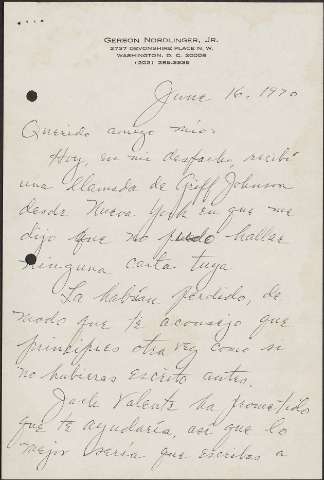 GERSON NORDLINGER, JR.
2737 DEVONSHIRE PLACE N.W.
WASHINGTON, D. C. 20008
(202) 265-3335
June 16, 1970
Querido amigo mio:
Hoy, en mi despacho, recibí
una llamada de Griff Johnson
desde Nueva York en que me
dijo que no pudo hallar
ninguna carta tuya.
La habían perdido, de
modo que te aconsejo que
principies otra vez como si
no hubieras escrito antes.
Jack Valenti ha prometido
que te ayudaría, así que lo
mejor sería que escribas a